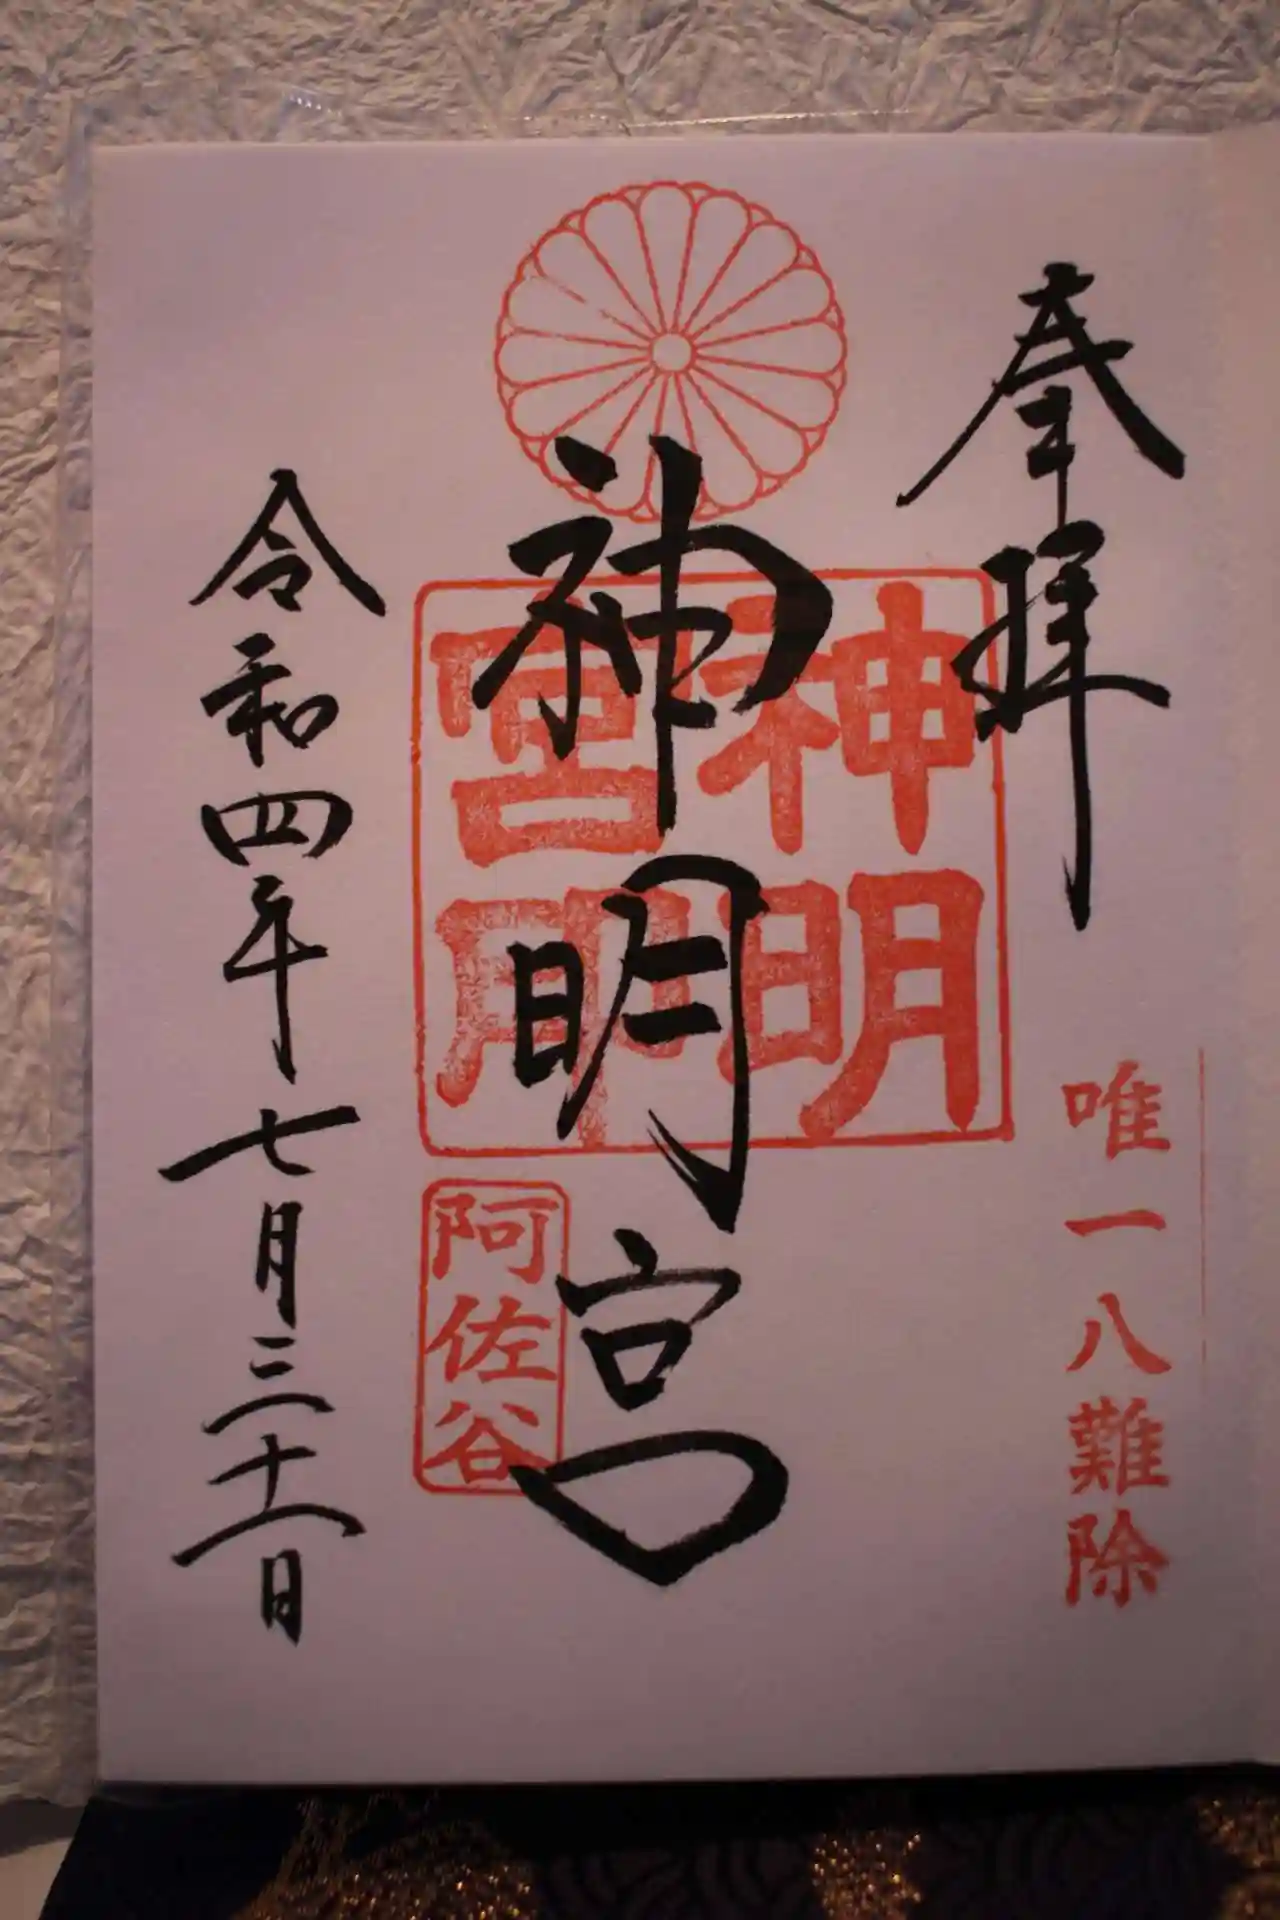 奉拝
唯一八難除
神明宮
神明宮印
阿佐谷
令和四年七月三十一日